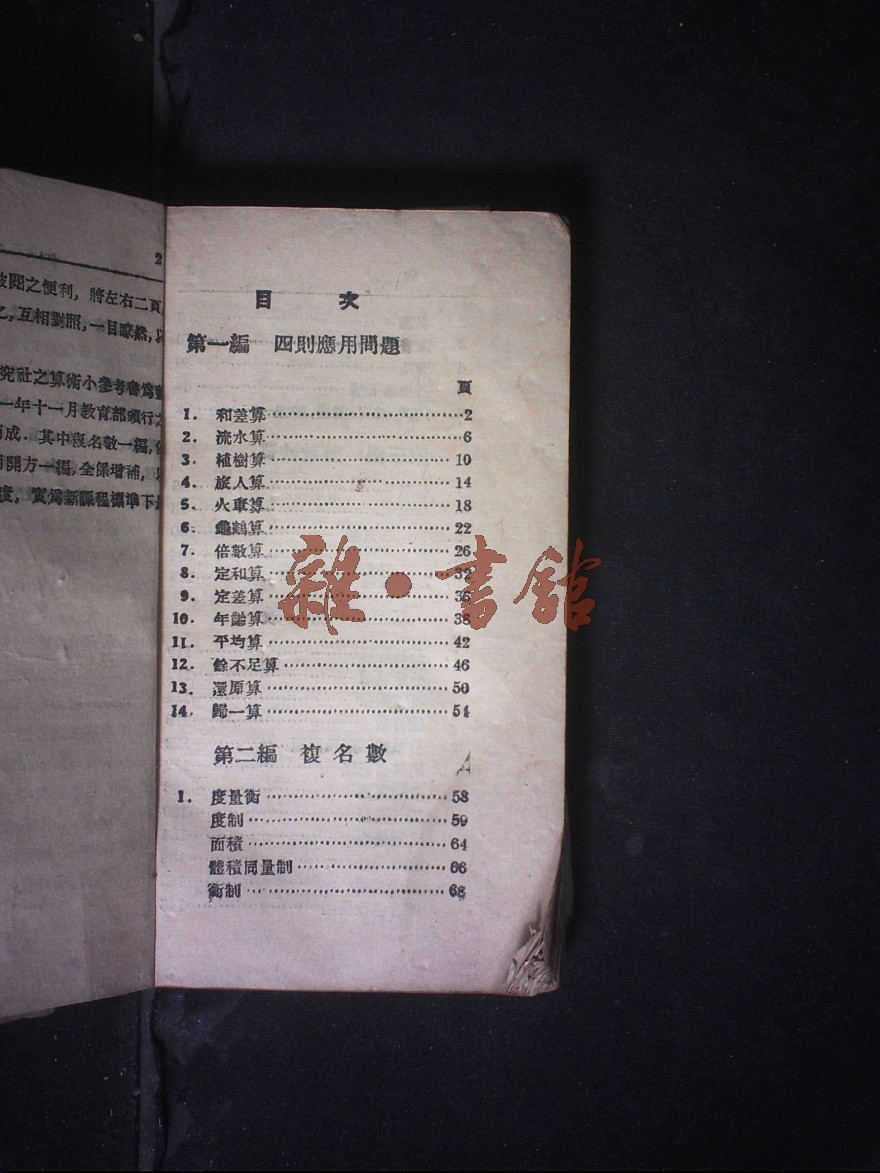 2
閱之便利, 將左右二頁
互相對照, 一目瞭然,
究社之算術小參考書爲
一年十一月教育部頒行之
而成. 其中複名數一編,
開方一編, 全係增補,
度, 實爲新課程標準下
目 次
第一編 四則應用問題
頁
1. 和差算……2
2. 流水算……6
3. 植樹算……10
4. 旅人算……14
5. 火車算……18
6. 龜鶴算……22
7. 倍數算……26
8. 定和算……32
9. 定差算……36
10. 年齡算……38
11. 平均算……42
12. 餘不足算……46
13. 還原算……50
14. 歸一算……54
第二編 複名數
1. 度量衡……58
度制……59
面積……64
體積同量制……66
衡制……68
雜·書館